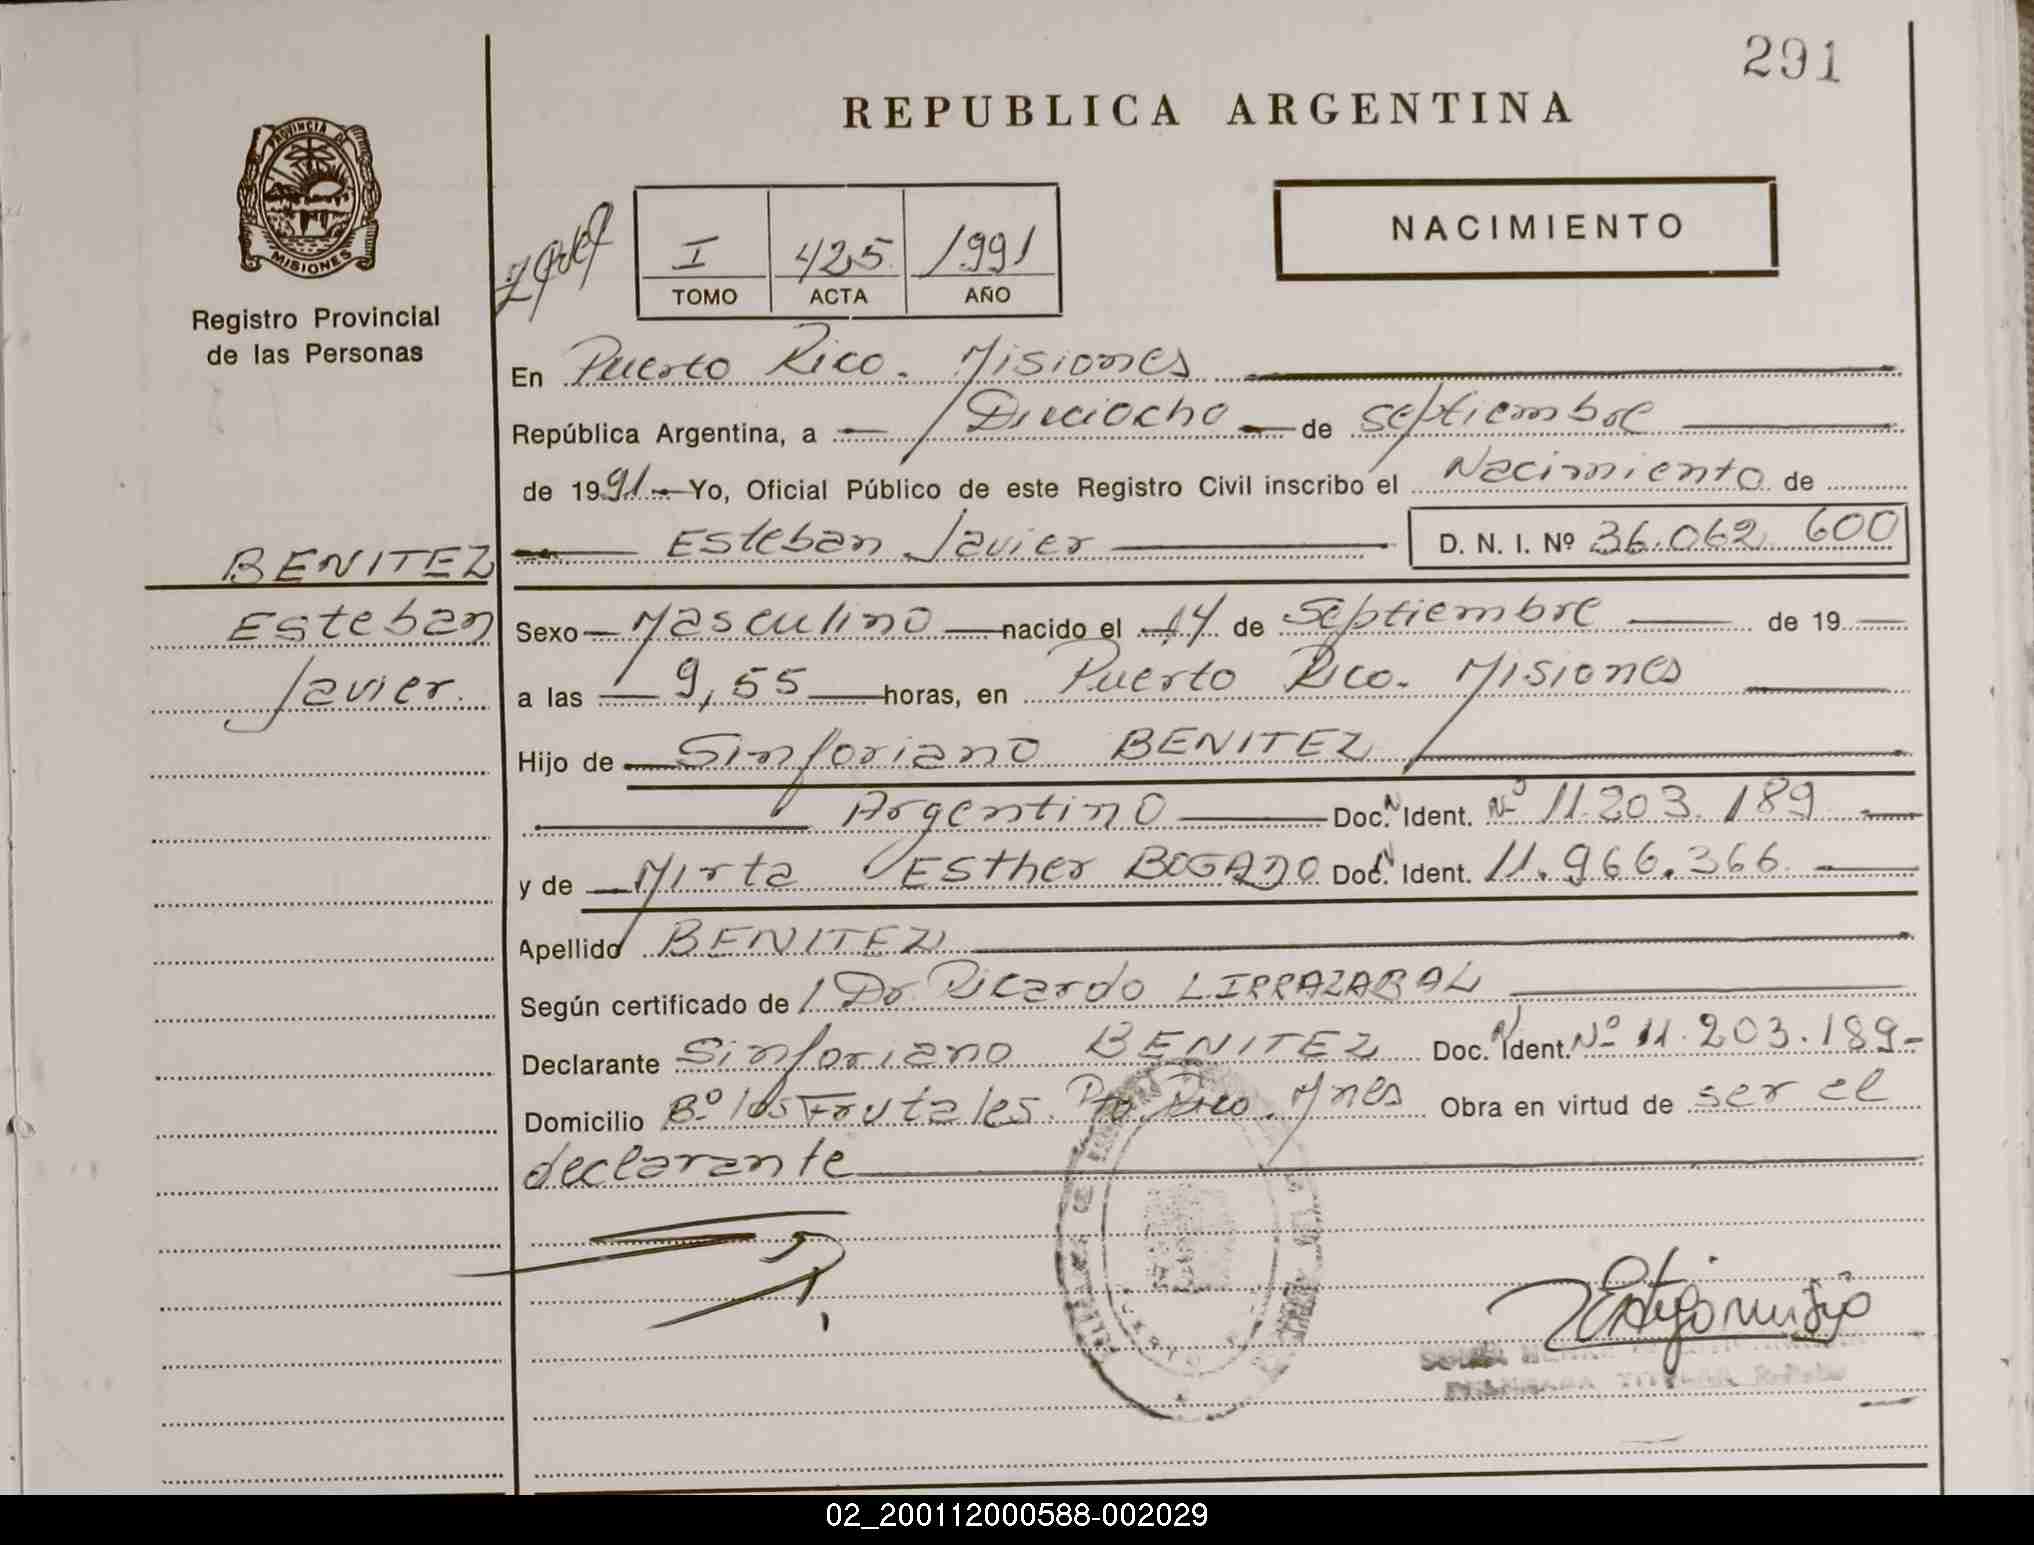 291
REPUBLICA ARGENTINA
PROVINCIA DE
MISIONES
Registro Provincial
de las Personas
I 425 1991
TOMO ACTA AÑO
NACIMIENTO
En Puerto Rico. Misiones
República Argentina, a Dieciocho de Septiembre
de 1991 Yo, Oficial Público de este Registro Civil inscribo el Nacimiento de
Esteban Javier D. N. I. Nº 36.062.600
BENITEZ
Esteban
Javier.
Sexo Masculino nacido el 14 de Septiembre de 19
a las 9,55 horas, en Puerto Rico. Misiones
Hijo de Sinforiano BENITEZ
Argentino Doc. N Ident. Nº 11.203.189
y de Mirta Esther BOGADO Doc. N Ident. 11.966.366
Apellido BENITEZ
Según certificado de Dr Ricardo LIRRAZABAL
Declarante Sinforiano BENITEZ Doc. N Ident. Nº 11.203.189-
Domicilio Bº los Frutales. Pto Rico. Mnes Obra en virtud de ser el
declarante
02_200112000588-002029